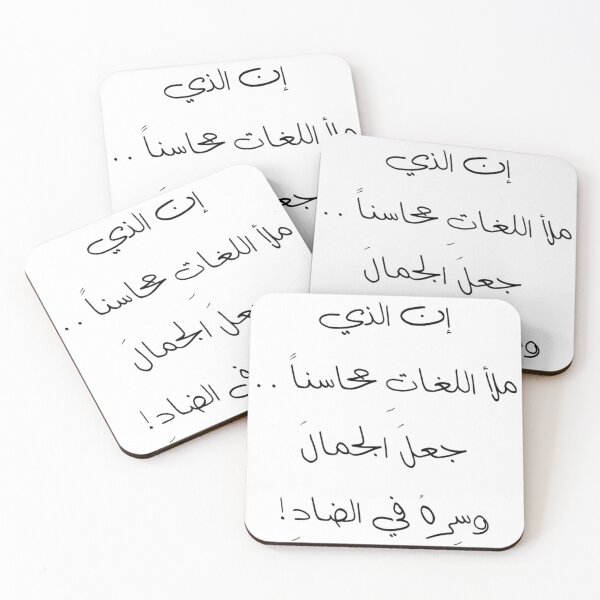 إن الذي
ملأ اللغات محاسناً ..
جعل
إن الذي
ملأ اللغاتِ محاسناً ..
جعلَ الجمالَ
إن الذي
ملأ اللغاتِ محاسناً ..
جعلَ الجمالَ
في الضادِ!
إن الذي
ملأ اللغاتِ محاسناً ..
جعلَ الجمالَ
وسِرهُ في الضادِ!